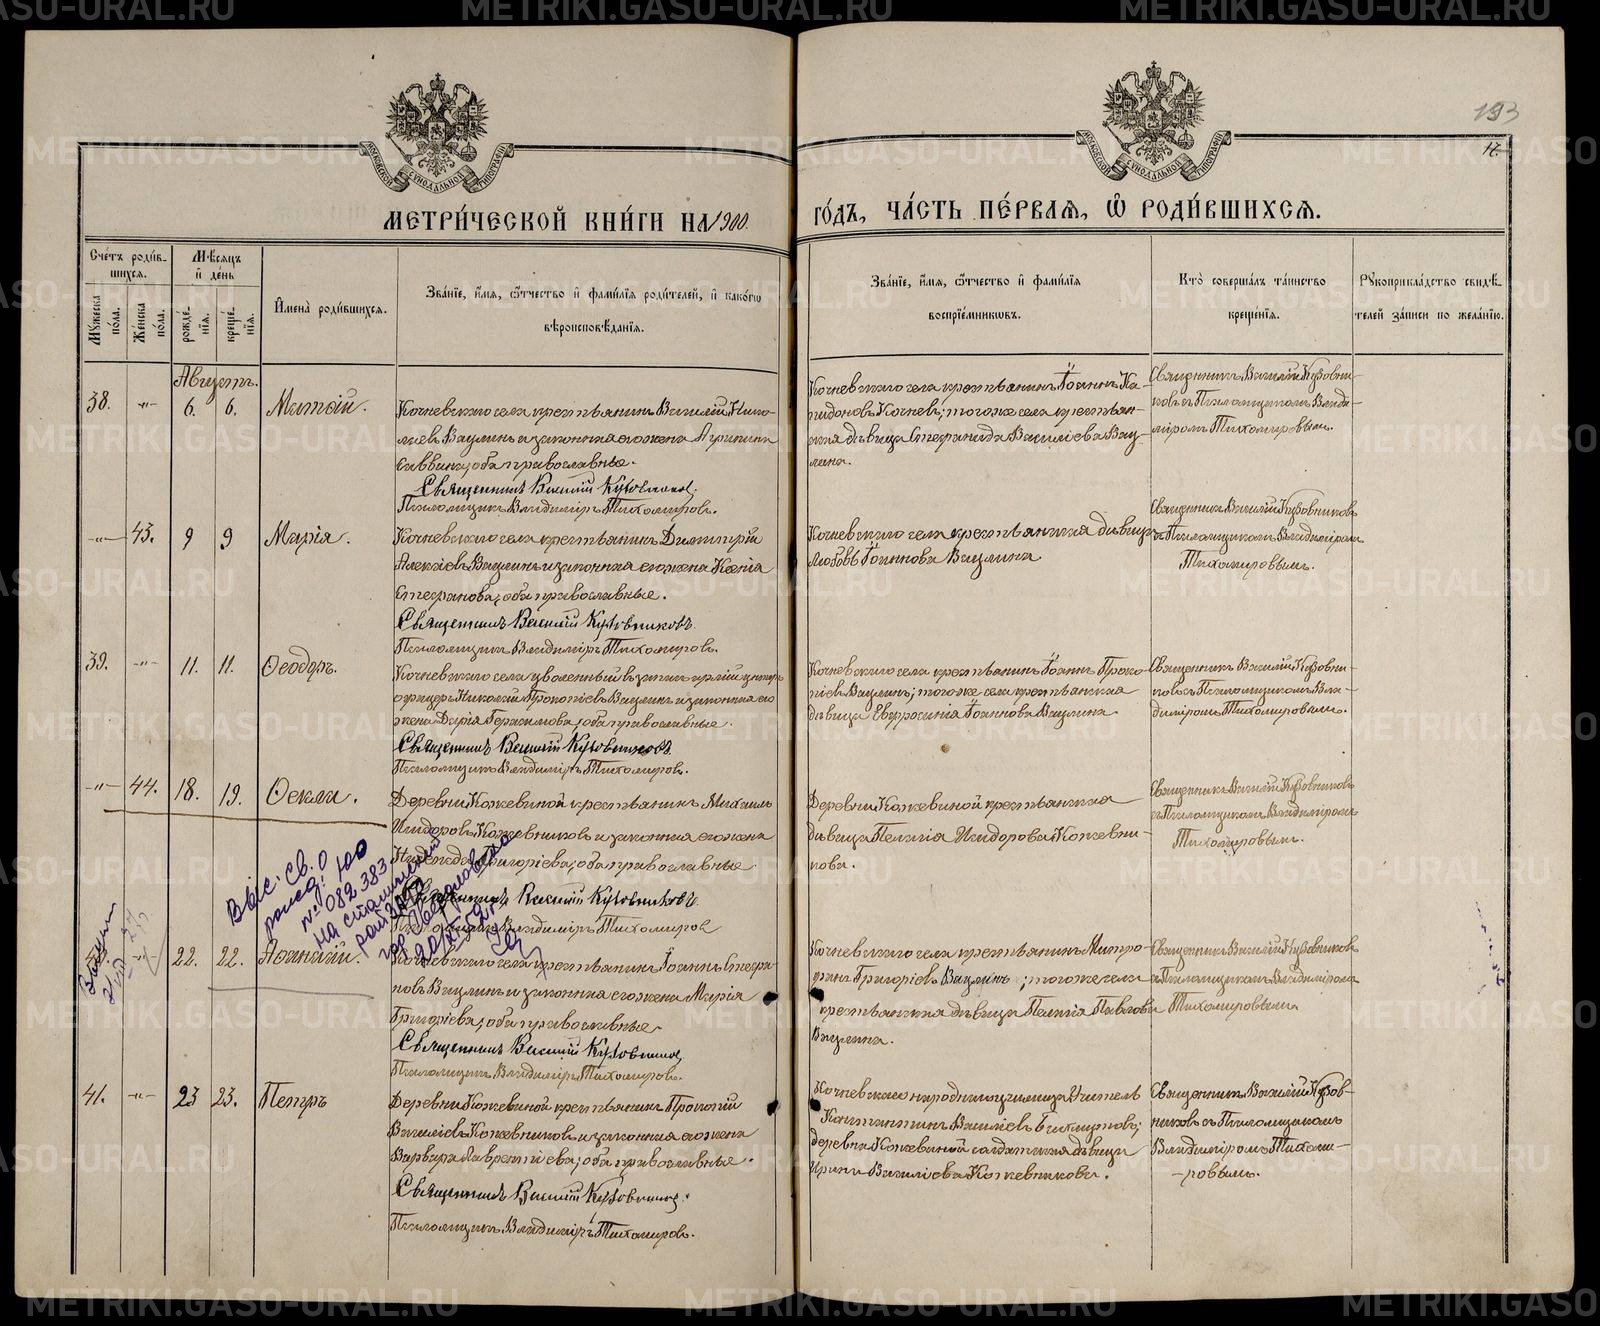 193
17.
МОСКОВСКОЙ СѴНОДАЛЬНОЙ ТИПОГРАФІИ
МОСКОВСКОЙ СѴНОДАЛЬНОЙ ТИПОГРАФІИ
МЕТРИ́ЧЕСКОЙ КНИ́ГИ НА 1900.
ГО́ДЪ, ЧА́СТЬ ПЕ́РВАѦ, Ѡ҆ РОДИ́ВШИХСѦ.
Сче́тъ роди́в-
шихсѧ.
Мѹ́жеска по́ла.
Же́нска по́ла.
Мѣ́сѧцъ
и҆ де́нь
рожде́-
нїѧ.
креще́-
нїѧ.
И҆мена̀ роди́вшихсѧ.
Зва́нїе, и҆́мѧ, ѻ҆́тчество и҆ фами́лїѧ роди́телей, и҆ како́гѡ
вѣроисповѣ́данїѧ.
Зва́нїе, и҆́мѧ, ѻ҆́тчество и҆ фами́лїѧ
воспрїе́мникѡвъ.
Кто̀ соверша́лъ та́инство
креще́нїѧ.
Рꙋкоприкла́дство свидѣ́-
телей за́писи по жела́нїю.
Августъ.
38. -„- 6. 6. Матѳій.
Кочневскаго села крестьянинъ Василій Нико-
лаевъ Ваулинъ и законная его жена Агрипина
Саввина, оба православные.
Священникъ Василій Кузовников.
Псаломщикъ Владиміръ Тихомировъ.
Кочневскаго села крестьянинъ Іоаннъ Ка-
питоновъ Кочневъ; того же села крестьян-
ская дѣвица Стефанида Васильева Вау-
лина.
Священникъ Василій Кузовни-
ковъ съ Псаломщикомъ Влади-
міромъ Тихомировымъ.
-„- 43. 9 9 Марія.
Кочневскаго села крестьянинъ Димитрій
Алексѣевъ Ваулинъ и законная его жена Ксенія
Стефанова, оба православные.
Священникъ Василій Кузовниковъ.
Псаломщикъ Владиміръ Тихомировъ.
Кочневскаго села крестьянская дѣвица
Любовь Іоаннова Ваулина
Священникъ Василій Кузовниковъ
съ Псаломщикомъ Владиміромъ
Тихомировымъ.
39. -„- 11. 11. Ѳеодоръ.
Кочневскаго села уволенный въ запас арміи унтеръ
офицеръ Николай Прокопіевъ Ваулинъ и законная его
жена Дарія Герасимова, оба православные.
Священникъ Василій Кузовниковъ
Псаломщикъ Владиміръ Тихомировъ.
Кочневскаго села крестьянинъ Іоаннъ Проко-
піевъ Ваулинъ; того же села крестьянская
дѣвица Евфросинія Іоаннова Ваулина.
Священникъ Василій Кузовни-
ковъ съ Псаломщикомъ Вла-
диміромъ Тихомировымъ.
-„- 44. 18. 19. Ѳекла.
Деревни Кожевиной крестьянинъ Михаилъ
Исидоровъ Кожевниковъ и законная его жена
Надежда Григоріева, оба православные
Священникъ Василій Кузовниковъ.
Псаломщикъ Владиміръ Тихомиров
Деревни Кожевиной крестьянская
дѣвица Пелагія Исидорова Кожевни-
кова.
Священникъ Василій Кузовниковъ
съ Псаломщикомъ Владиміромъ
Тихомировымъ.
Выс. Св. о
рожд. ЮО
№ 082383
на
22. 22. Аѳанасій.
Кочневскаго села крестьянинъ Іоаннъ Стефа-
новъ Ваулинъ и законная его жена Марія
Григоріева, оба православные.
Священникъ Василій Кузовников,
Псаломщикъ Владиміръ Тихомировъ.
Кочневскаго села крестьянинъ Митро-
фанъ Григоріевъ Ваулинъ; того же села
крестьянская дѣвица Пелагія Павлова
Ваулина.
Священникъ Василій Кузовниковъ
съ Псаломщикомъ Владиміромъ
Тихомировымъ
41. -„- 23 23. Петръ
Деревни Кожевиной крестьянинъ Прокопій
Василіевъ Кожевниковъ и законная его жена
Варвара Лаврентіева, оба православные.
Священникъ Василій Кузовников.
Псаломщикъ Владиміръ Тихомировъ.
Кочневскаго народнаго училища Учитель
Константинъ Василіевъ
деревни Кожевиной солдатская дѣвица
Ирина Василіева Кожевникова.
Священникъ Василій Кузов-
никовъ съ Псаломщикомъ
Владиміромъ Тихоми-
ровымъ.
METRIKI.GASO-URAL.RU